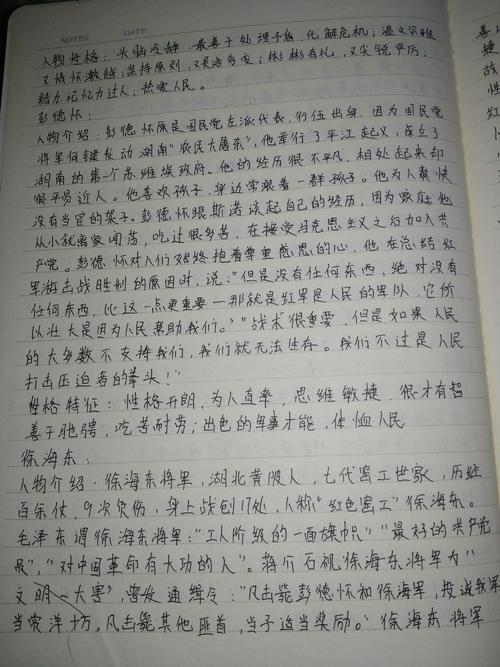 NOTES DATE
人物性格：头脑冷静，最善于处理矛盾，化解危机；温文尔雅
又情怀激越；坚持原则，又灵活多变；彬彬有礼，又尖锐严厉；
精力记忆力过人；热爱人民。
彭德怀：
人物介绍：彭德怀原是国民党左派代表，行伍出身，因为国民党
将军何键发动湖南"农民大屠杀"，他举行了平江起义，成立了
湖南的第一个苏维埃政府。他的经历很不平凡，相处起来却
很平易近人。他喜欢孩子，身边常跟着一群孩子。他为人爽快
没有当官的架子。彭德怀跟斯诺谈起自己的经历，因为家庭他
从小就离家闯荡，吃过很多苦，在接受马克思主义之后加入共
产党。彭德怀对人们始终抱着尊重感恩的心，他在总结红
军游击战胜制的原因时，说："但是没有任何东西，绝对没有
任何东西，比这一点更重要—那就是红军是人民的军队，它所
以壮大是因为人民帮助我们。""战术很重要，但是如果人民
的大多数不支持我们，我们就无法生存。我们不过是人民
打击压迫者的拳头！"
性格特征：性格开朗，为人直率，思维敏捷，很才有智
善于驰骋，吃苦耐劳；出色的军事才能，体恤人民
徐海东：
人物介绍：徐海东将军，湖北黄陂人，七代窑工世家，历经
百余仗，9次负伤，身上战创17处，人称"红色窑工"徐海东。
毛泽东谓徐海东将军："工人阶级的一面旗帜""最好的共产党
员""对中国革命有大功的人"。蒋介石视徐海东将军为"
文明一大害"，曾发通缉令："凡击毙彭德怀和徐海军，投诚我军
当赏洋坊，凡击毙其他匪首，当予适当奖励。"徐海东将军